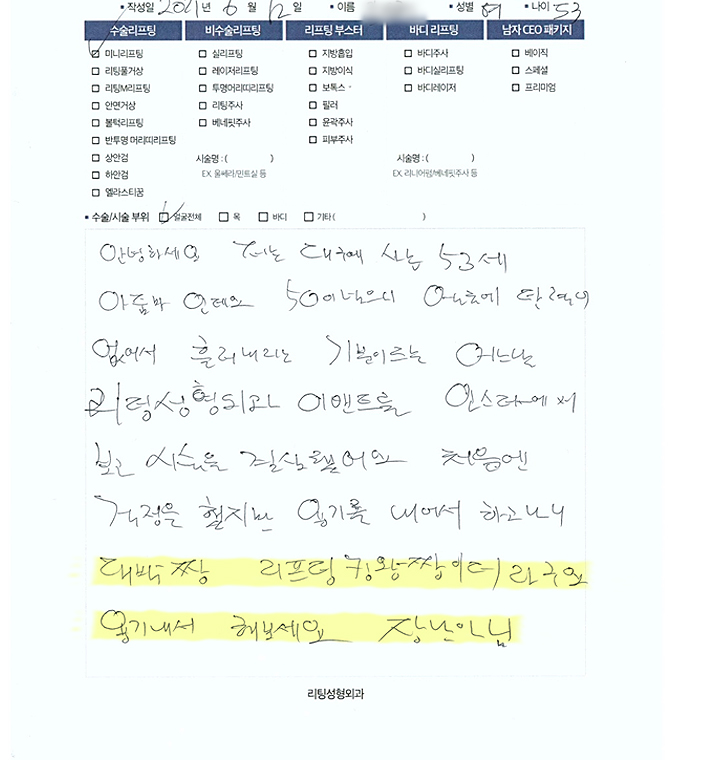 • 작성일 2021 년 6 월 12 일 • 이름 • 성별 여 • 나이 53
수술리프팅 비수술리프팅 리프팅 부스터 바디 리프팅 남자 CEO 패키지
미니리프팅 실리프팅 지방흡입 바디주사 베이직
리팅풀거상 레이저리프팅 지방이식 바디실리프팅 스페셜
리팅M리프팅 투명머리띠리프팅 보톡스 바디레이저 프리미엄
안면거상 리팅주사 필러
볼턱리프팅 베네핏주사 윤곽주사
반투명 머리띠리프팅 피부주사
상안검 시술명 : ( ) 시술명 : ( )
하안검 EX. 울쎄라/민트실 등 EX. 리니어펌/베네핏주사 등
엘라스티꿈
• 수술/시술 부위 얼굴전체 목 바디 기타 ( )
안녕하세요 저는 대구에 사는 53세
아줌마 인데요 50이넘으니 탄력이
없어서 흘러내리는 기분이드는 어느날
리팅성형외과 이벤트를 인스타에서
보고 시술을 결심했어요 처음엔
걱정을 했지만 용기를 내어서 하고나니
대박짱 리프팅 킹왕짱이더라구요
용기내서 해보세요 장난아님
리팅성형외과